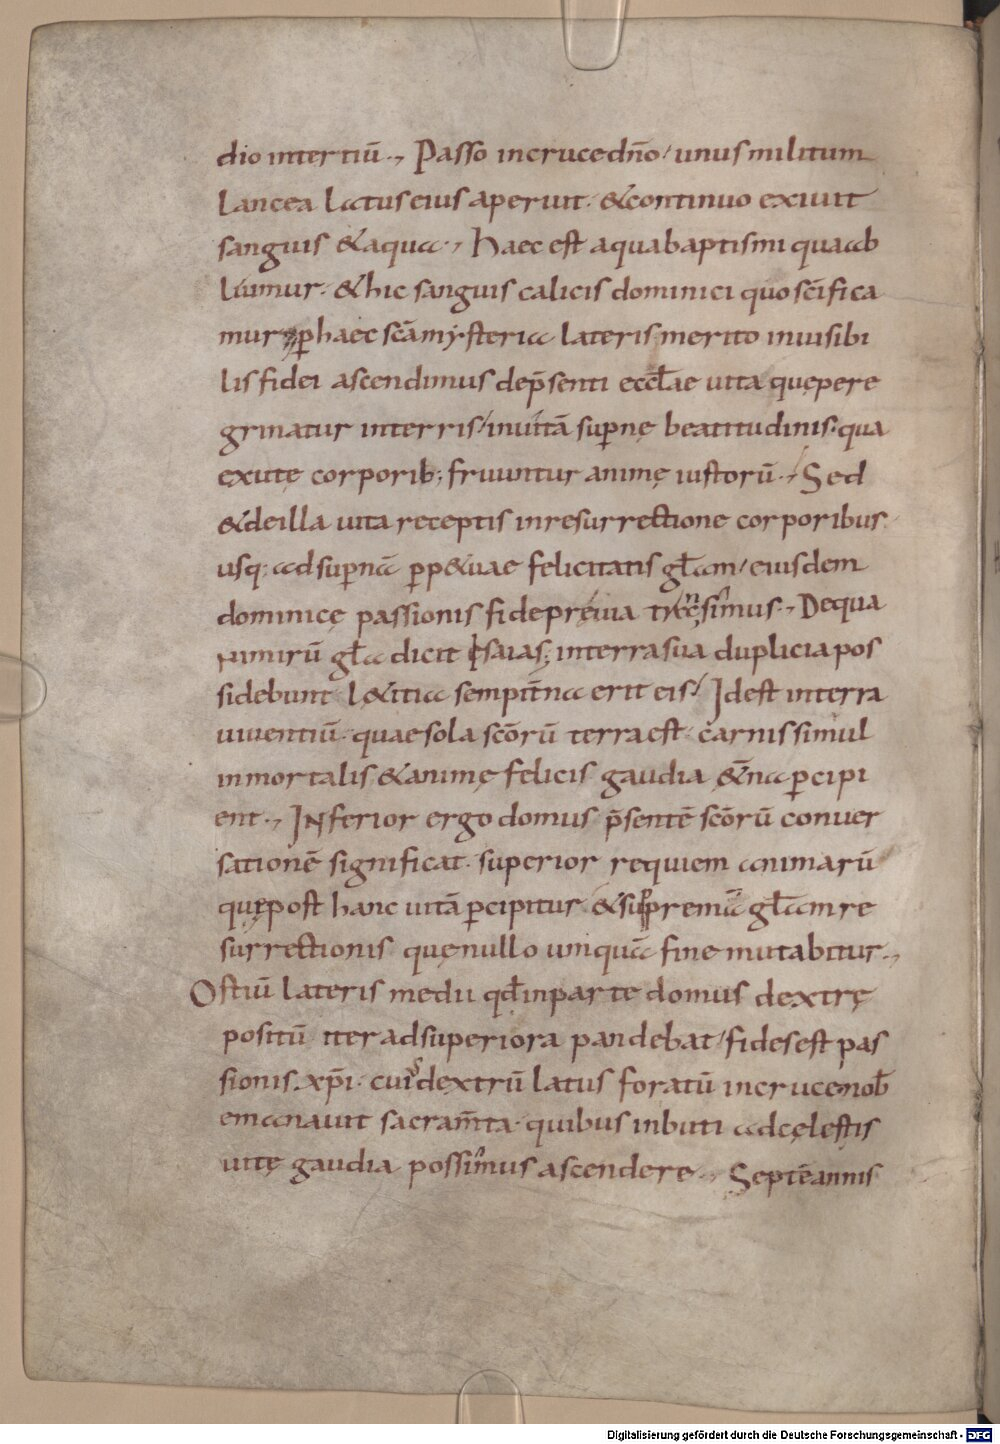 dio intertiū., Passo incrucedn̄o/ unusmilitum
lancea latuseius aperuit. &continuo exiuit
sanguis &aqua., haec est aquabaptismi quaab
luimur. &hic sanguis calicis dominici quo sc̄ifica
mur ꝑhaec sc̄amysteria lateris merito inuisibi
lis fidei ascendimus dep̄senti eccl̄ae uita quępere
grinatur interris/ inuitā suꝑnę beatitudinis. qua
exutę corporib; fruuntur animę iustorū., Sed
&deilla uita receptis inresurrectione corporibus
usq; adsuꝑnā ꝑp&uae felicitatis gl̄am/ eiusdem
dominicę passionis fide pręuia
nimirū gl̄a dicit Isaias; interrasua duplicia pos
sidebunt l&itia sempit̄na erit eis/ Idest interra
uiuentiū. quaesola sc̄orū terraest. carnis simul
inmortalis &animę felicis gaudia &̄na ꝑcipi
ent., INferior ergo domus p̄sentē sc̄orū conuer
sationē significat. superior requiem animarū
quępost hanc uitā ꝑcipitur. &supremā gl̄am re
surrectionis quęnullo umquā fine mutabitur.,
Ostiū lateris medii qd̄inparte domus dextrę
positū iter adsuperiora pandebat/ fidesest pas
sionis xp̄i. cuiꝰdextrū latus foratū incruce nob̄
emanauit sacram̄ta. quibus inbuti adcęlestis
uitę gaudia possimus ascendere., Septēannis
Digitalisierung gefördert durch die Deutsche Forschungsgemeinschaft - DFG